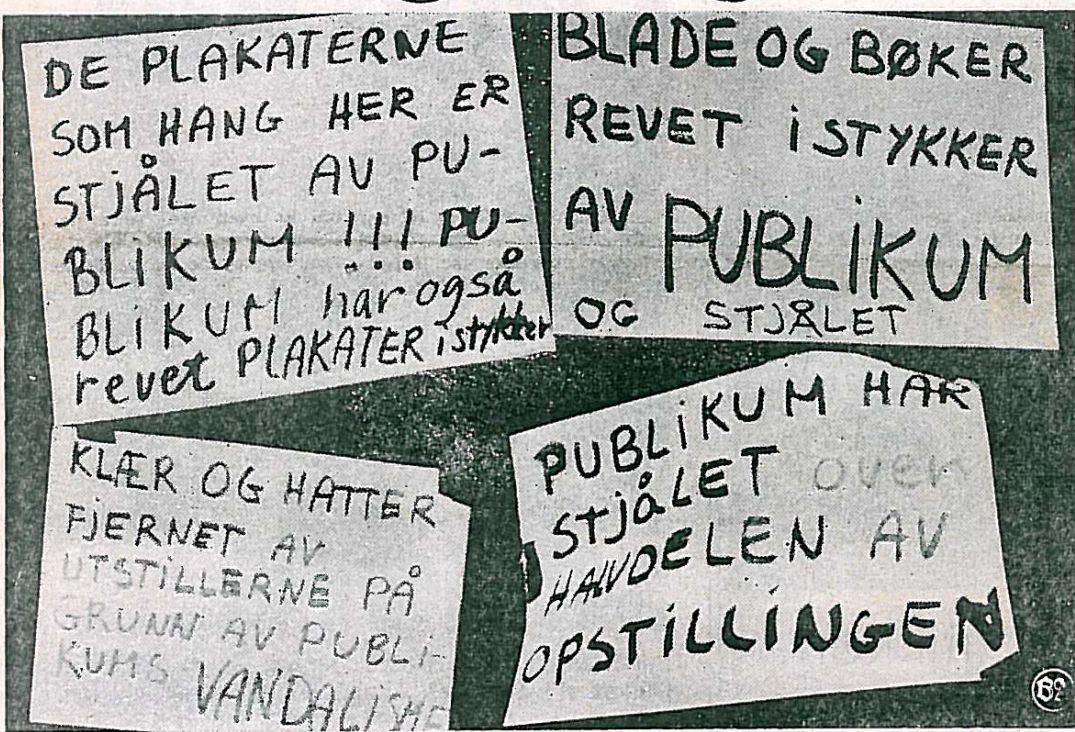 DE PLAKATERNE
SOM HANG HER ER
STJÅLET AV PU-
BLIKUM !!! PU-
BLIKUM har også
revet PLAKATER istykker
BLADE OG BØKER
REVET iSTYKKER
AV PUBLIKUM
OG STJÅLET
KLÆR OG HATTER
FJERNET AV
UTSTILLERNE PÅ
GRUNN AV PUBLI-
KUMS VANDALISME
PUBLIKUM HAR
STJÅLET over
HALVDELEN AV
OPSTILLINGEN